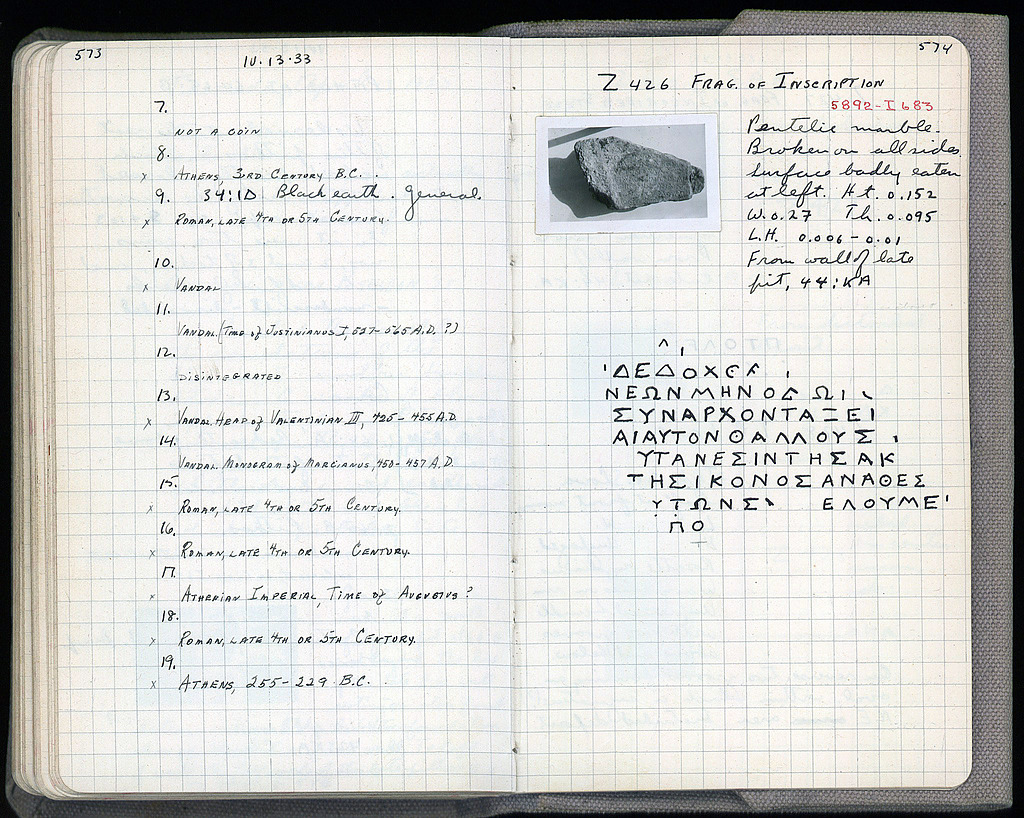 573
IV·13·33
7.
NOT A COIN
8.
x ATHENS, 3RD CENTURY B.C.
9. 34:ΙΔ Black earth. General.
x ROMAN, LATE 4TH OR 5TH CENTURY.
10.
x VANDAL
11.
VANDAL. (TIME of JUSTINIANUS I, 527-565 A.D. ?)
12.
DISINTEGRATED
13.
x VANDAL. HEAD of VALENTINIAN III, 425-455 A.D.
14.
VANDAL. MONOGRAM of MARCIANUS, 450-457 A.D.
15.
x ROMAN, LATE 4TH OR 5TH CENTURY.
16.
x ROMAN, LATE 4TH OR 5TH CENTURY.
17.
x ATHENIAN IMPERIAL, TIME of AUGUSTUS?
18.
x ROMAN, LATE 4TH OR 5TH CENTURY.
19.
x ATHENS, 255-229 B.C.
574
Z 426 FRAG. OF INSCRIPTION
5892-I 683
Pentelic marble.
Broken on all sides.
Surface badly eaten
at left. Ht. 0.152
W. 0.27 Th. 0.095
L.H. 0.006-0.01
From wall of late
pit, 44:ΚΑ
ΔΕΔΟΧΕ
ΝΕΩΝΜΗΝΟΣ ΩΙ
ΣΥΝΑΡΧΟΝΤΑΞΕΙ
ΑΙΑΥΤΟΝΘΑΛΛΟΥΣ
ΥΤΑΝΕΣΙΝΤΗΣΑΚ
ΤΗΣΙΚΟΝΟΣΑΝΑΘΕΣ
ΥΤΩΝΣ ΕΛΟΥΜΕ
ΠΟ